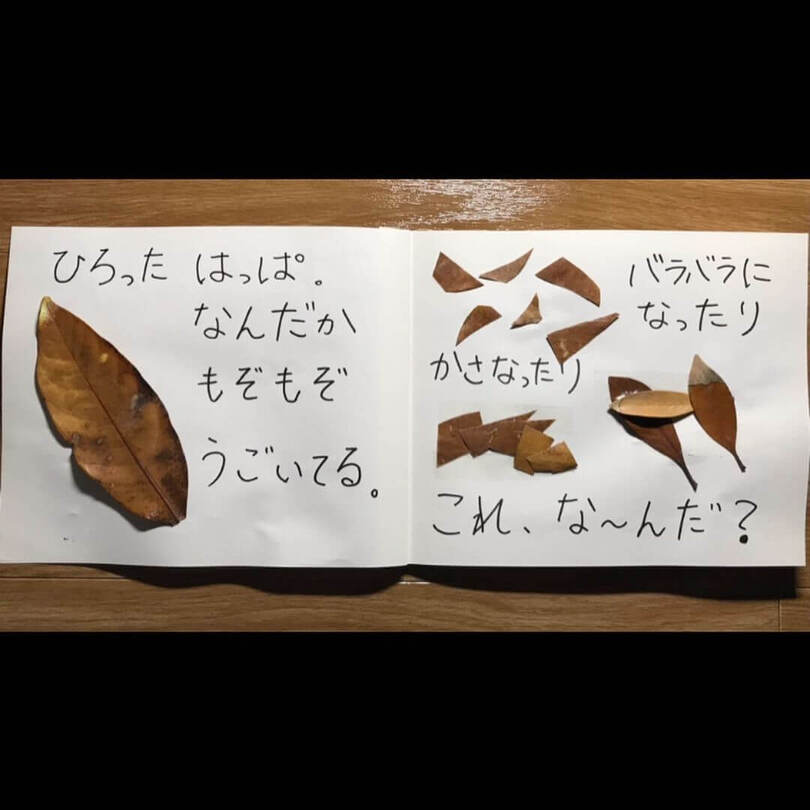 ひろった はっぱ。
なんだか
もぞもぞ
うごいてる。
バラバラに
なったり
かさなったり
これ、な〜んだ?